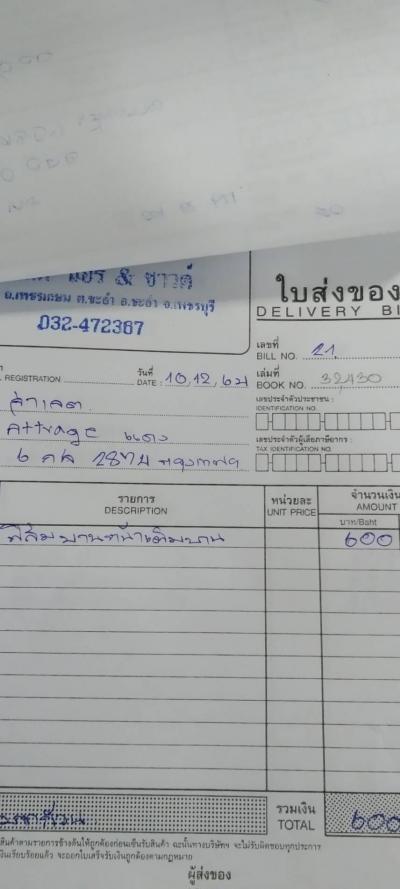 แอร์ & ซาวด์
ถ.เพชรเกษม ต.ชะอำ อ.ชะอำ จ.เพชรบุรี
032-472387
ใบส่งของ
DELIVERY BI
เลขที่
BILL NO. 21
วันที่
REGISTRATION DATE : 10,12,62
เล่มที่
BOOK NO. 32430
เลขประจำตัวประชาชน :
IDENTIFICATION NO.
Attrage แดง
เลขประจำตัวผู้เสียภาษีอากร :
TAX IDENTIFICATION NO.
6 กล 2874 กรุงเทพฯ
รายการ หน่วยละ จำนวนเงิน
DESCRIPTION UNIT PRICE AMOUNT
บาท/Baht
ฟิล์มบานหน้าเต็มบาน 600
รวมเงิน
TOTAL 600
สินค้าตามรายการข้างต้นให้ถูกต้องก่อนเซ็นรับสินค้า ฉะนั้นทางบริษัทฯ จะไม่รับผิดชอบทุกประการ
เงินเรียบร้อยแล้ว จะออกใบเสร็จรับเงินถูกต้องตามกฎหมาย
ผู้ส่งของ